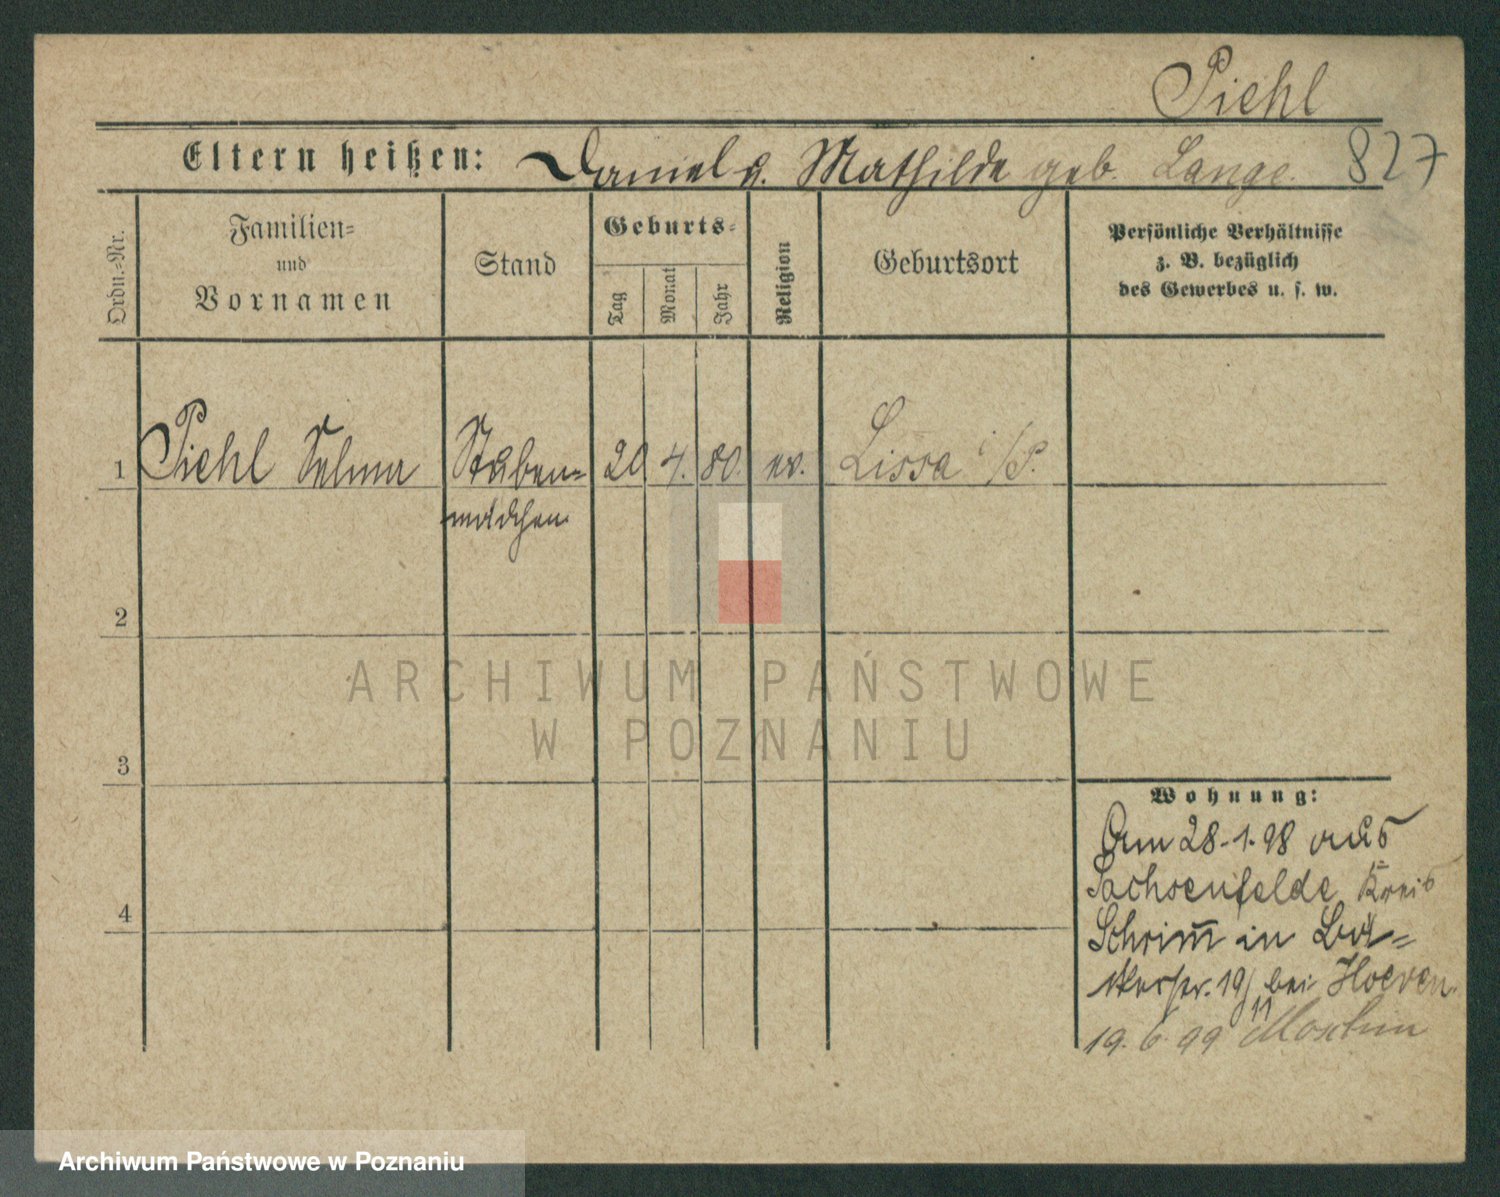 Piehl
Eltern heißen: Daniel u. Mathilde geb. Lange.
827
Ordn.=Nr.
Familien=
und
Vornamen
Stand
Geburts=
Tag
Monat
Jahr
Religion
Geburtsort
Persönliche Verhältnisse
z. B. bezüglich
des Gewerbes u. s. w.
1 Piehl Selma Stuben= 20 4. 80. ev. Lissa i/P.
mädchen
2
3
4
Wohnung:
Am 28.1.98 aus
Sachsenfelde Kreis
Schrim̅ in
19/11 bei
19. 6. 99
ARCHIWUM PAŃSTWOWE
W POZNANIU
Archiwum Państwowe w Poznaniu